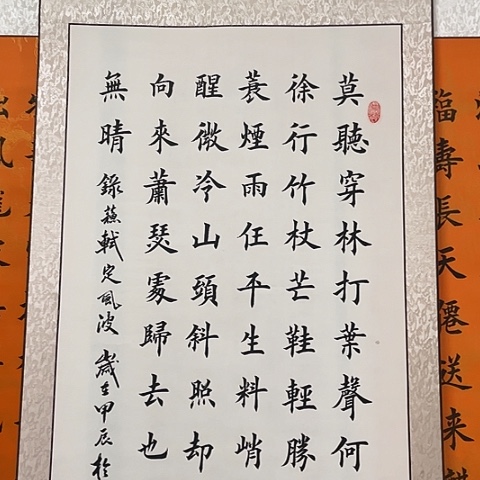 臨壽長天僊送来
莫聽穿林打葉聲何
徐行竹杖芒鞋輕勝
蓑煙雨任平生料峭
醒微冷山頭斜照却
向來蕭瑟處歸去也
無晴 錄蘇軾定風波 歲在甲辰於